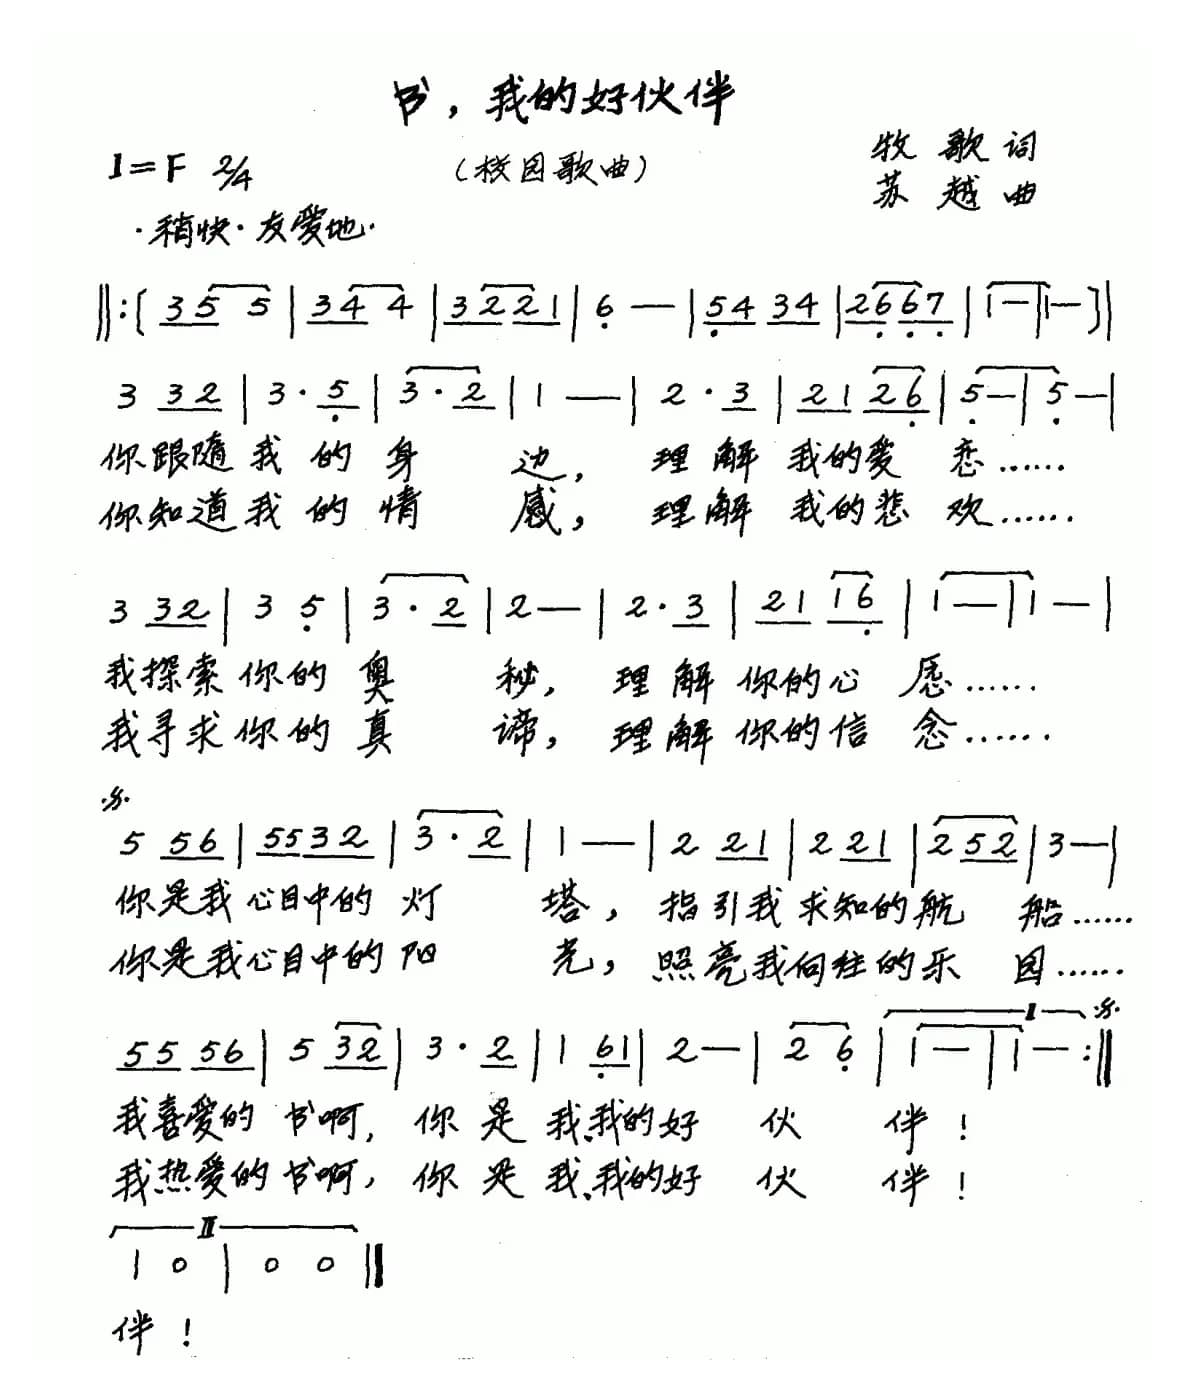 书，我的好伙伴
1=F 2/4 （校园歌曲） 牧歌词
苏越曲
·稍快·友爱地·
‖:〔3 5 5 | 3 4 4 | 3 2 2 1 | 6 — | 5 4 3 4 | 2 6 6 7 | 1 — | 1 — 〕|
3 3 2 | 3 · 5 | 3 · 2 | 1 — | 2 · 3 | 2 1 2 6 | 5 — | 5 — |
你跟随我的身边，理解我的爱恋……
你知道我的情感，理解我的悲欢……
3 3 2 | 3 5 | 3 · 2 | 2 — | 2 · 3 | 2 1 1 6 | 1 — | 1 — |
我探索你的奥秘，理解你的心愿……
我寻求你的真谛，理解你的信念……
𝄋
5 5 6 | 5 5 3 2 | 3 · 2 | 1 — | 2 2 1 | 2 2 1 | 2 5 2 | 3 — |
你是我心目中的灯塔，指引我求知的航船……
你是我心目中的阳光，照亮我向往的乐园……
I 𝄋
5 5 5 6 | 5 3 2 | 3 · 2 | 1 6 1 | 2 — | 2 6 | 1 — | 1 — :‖
我喜爱的书啊，你是我、我的好伙伴！
我热爱的书啊，你是我、我的好伙伴！
II
1 0 | 0 0 ‖
伴！